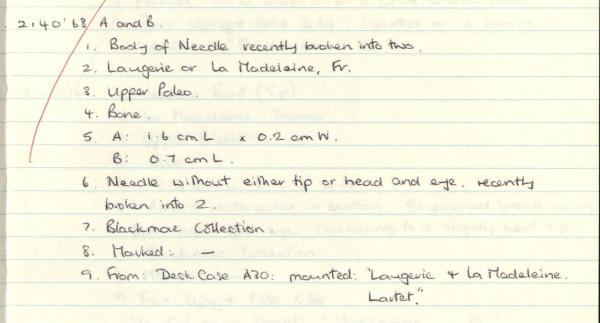 2:40'68 A and B.
1. Body of Needle recently broken into two.
2. Laugerie or La Madeleine, Fr.
3. Upper Paleo.
4. Bone.
5 A: 1.6 cm L x 0.2 cm W.
B: 0.7 cm L.
6. Needle without either tip or head and eye. recently
broken into 2.
7. Blackmore Collection.
8. Marked: —
9. From: Desk Case A30: mounted: "Laugerie & La Madeleine.
Lartet."